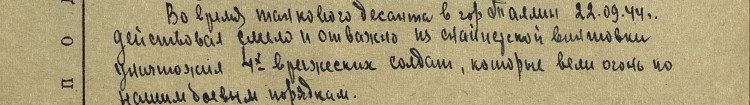 Во время танкового десанта в гор Таллин 22.09.44г.
действовал смело и отважно из снайперской винтовки
уничтожил 4х вражеских солдат, которые вели огонь по
нашим боевым порядкам.
п о